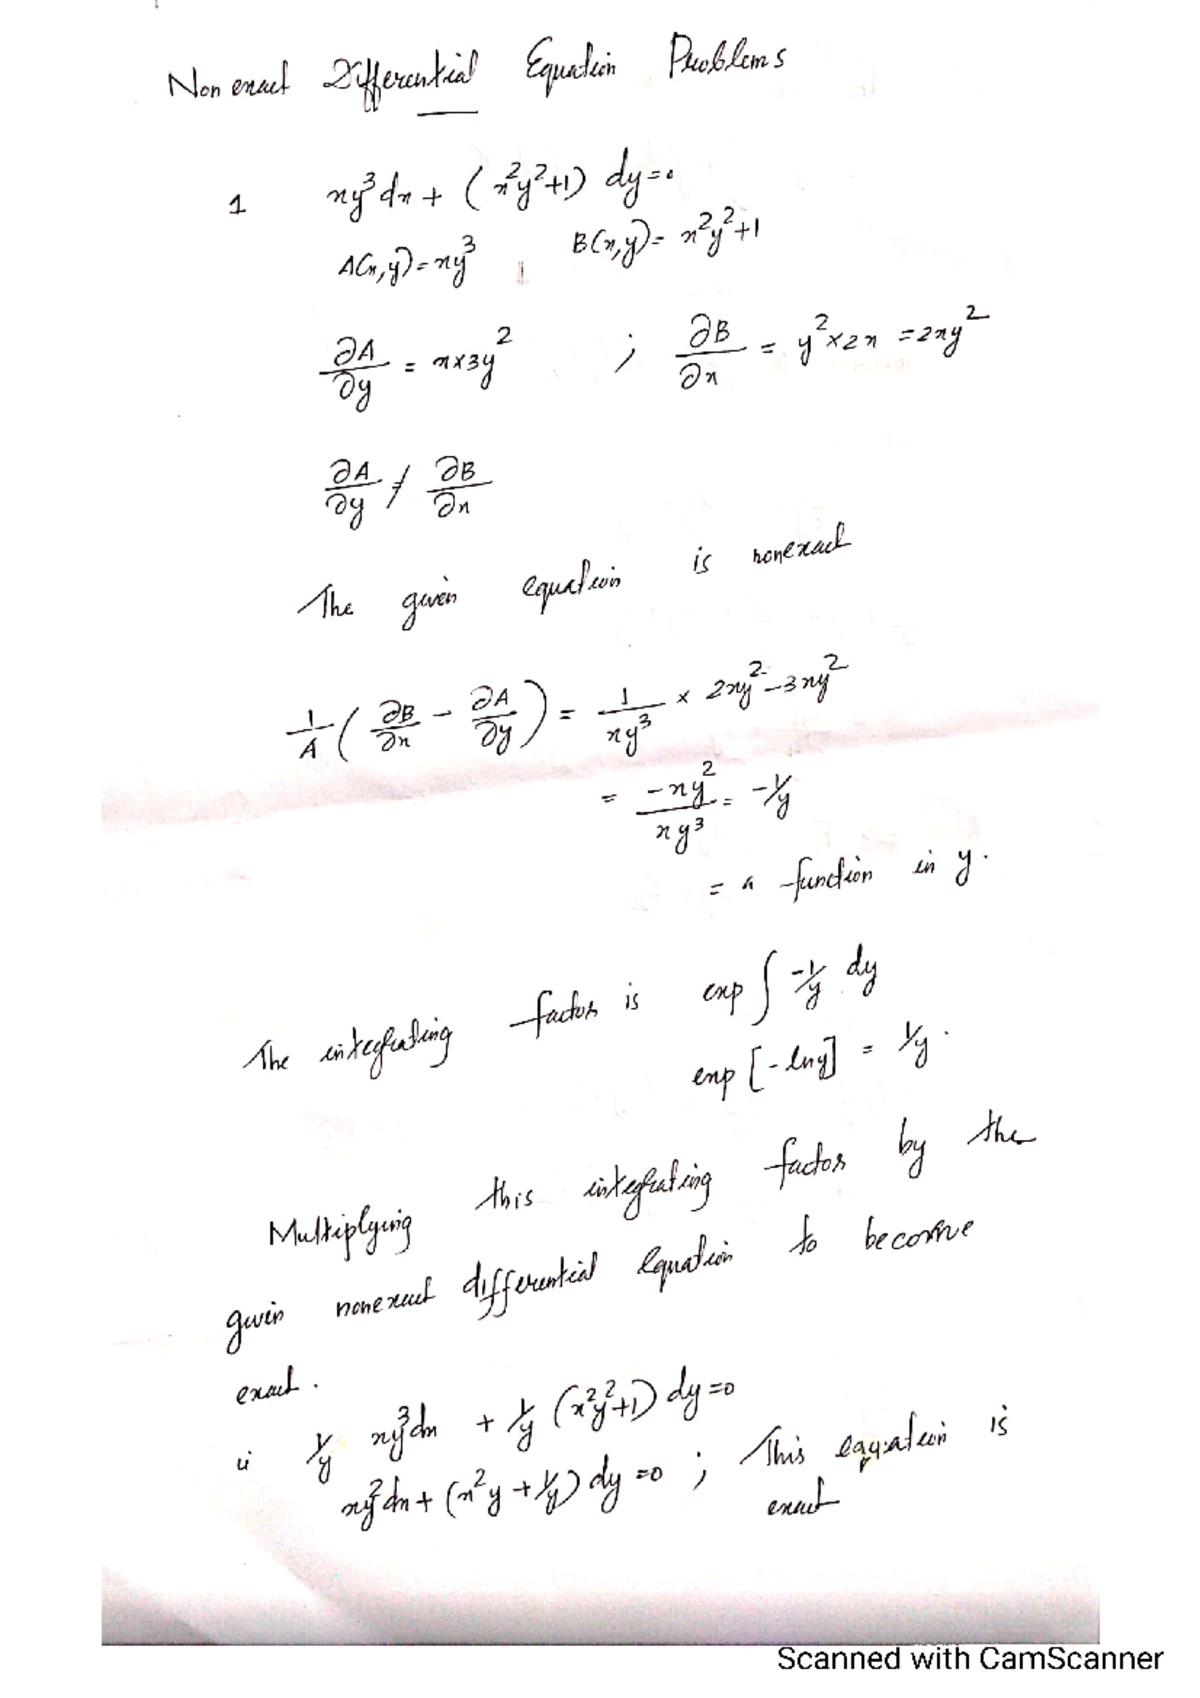 Non exact Differential Equation Problems
1 xy³dx + (x²y²+1) dy=0
A(x,y)=xy³ B(x,y)= x²y²+1
∂A/∂y = x×3y² ; ∂B/∂x = y²×2x =2xy²
∂A/∂y ≠ ∂B/∂x
The given equation is nonexact
1/A ( ∂B/∂x - ∂A/∂y ) = 1/xy³ × 2xy²-3xy²
= -xy²/xy³ = -1/y
= a function in y.
The integrating factor is exp ∫ -1/y dy
exp [-lny] = 1/y.
Multiplying this integrating factor by the
given nonexact differential equation to become
exact.
ie 1/y xy³dx + 1/y (x²y²+1) dy=0
xy²dx + (x²y + 1/y) dy =0 ; This equation is
exact
Scanned with CamScanner